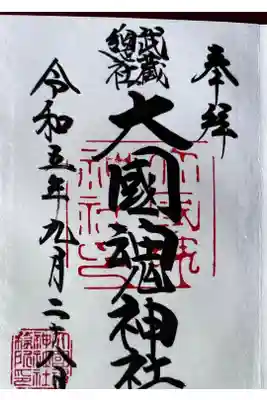 奉拝
武蔵
総社
大國魂神社
令和五年九月二十八日